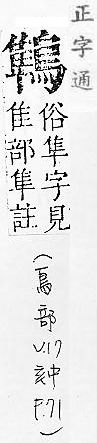 正字通
鶽
俗隼字見
隹部隼註
(鳥部 V.17 亥中 P.71)